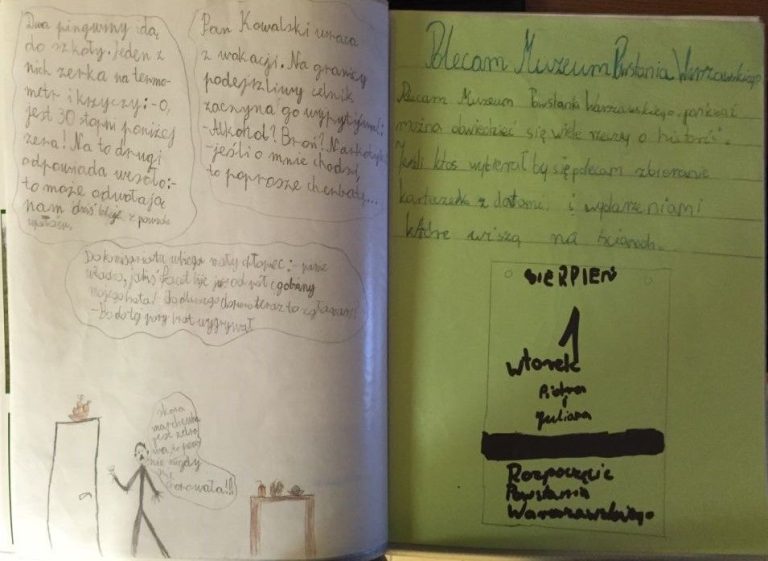 Dwa pingwiny idą
do szkoły. Jeden z
nich zerka na termo-
metr i krzyczy:-O,
jest 30 stopni poniżej
zera! Na to drugi
odpowiada wesoło:-
to może odwołają
nam dziś lekcje z powodu
upałów.
Pan Kowalski wraca
z wakacji. Na granicy
podejrzliwy celnik
zaczyna go wypytywać:
-Alkohol? Broń? Narkotyki?
-jeśli o mnie chodzi,
to poproszę herbatę...
Do komisariatu wbiega mały chłopiec:- panie
władzo, jakiś facet bije już od pół godziny
mojego tata! dlaczego dopiero teraz to zgłaszasz?
-Bo do tej pory tata wygrywał
skoro
marchewka
jest zdrowa
nie nigdy
chorowała!!!
Polecam Muzeum Powstania Warszawskiego
Polecam Muzeum Powstania Warszawskiego, ponieważ
można dowiedzieć się wiele rzeczy o historii.
Jeśli ktoś wybierał by się polecam zbieranie
karteczek z datami i wydarzeniami
które wiszą na ścianach.
SIERPIEŃ
1
wtorek
Piotra
i
Juliana
Rozpoczęcie
Powstania
Warszawskiego